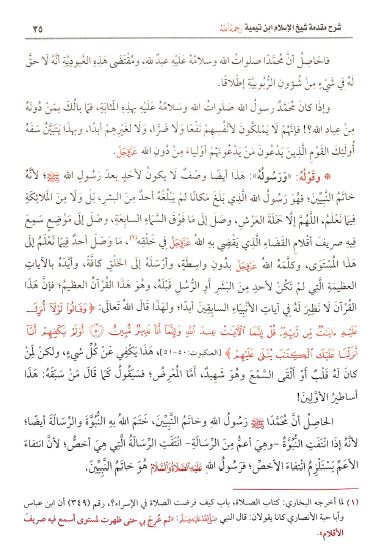 شرح مقدمة شيخ الإسلام ابن تيمية رحمه الله
٣٥
فالحاصِلُ أنَّ مُحمَّدًا صلواتُ اللهِ وسلامُهُ عَلَيْهِ عبدٌ للهِ، ومُقْتَضَى هَذِهِ العبوديَّةِ أنَّهُ لَا حَقَّ
لَهُ فِي شَيْءٍ مِنْ شُؤونِ الرُّبُوبِيَّةِ إطلاقًا.
وإذَا كانَ مُحَمَّدٌ رسولُ اللهِ صلواتُ اللهِ وسَلَامُهُ عَلَيْهِ بِهذِهِ المثابَةِ، فَمَا بالُكَ بمَنْ دُونَهُ
مِنْ عبادِ اللهِ؟! فإنَّهُمْ لَا يَمْلكُونَ لأَنْفُسِهِمْ نَفْعًا وَلَا ضَرًّا، وَلَا لغَيْرِهِمْ أبدًا، وبهذَا يتبيَّنُ سَفَهُ
أولئكَ القَوْمِ الَّذينَ يَدعُونَ مَنْ يَدْعُونَهُمْ أولياءَ مِنْ دُونِ اللهِ عَزَّوَجَلَّ.
* وقَوْلُهُ: «وَرَسُولُهُ»: هَذَا أيضًا وصفٌ لَا يكونُ لأحدٍ بعدَ رسولِ اللهِ ﷺ؛ لأنَّهُ
خاتَمُ النَّبيِّينَ؛ فهُوَ رَسولُ اللهِ الَّذي بَلَغَ مَكانًا لمْ يَبْلُغْهُ أحدٌ مِنَ البشرِ، بلْ وَلَا مِنَ الملائكةِ
فِيمَا نَعْلَمُ، اللَّهُمَّ إلَّا حمَلَةَ العَرْشِ، وصَلَ إِلَى مَا فَوْقَ السَّماءِ السابعةِ، وصَلَ إِلَى مَوْضِعٍ سَمِعَ
فِيهِ صريفَ أقلامِ القَضاءِ الَّذِي يَقْضِي بِهِ اللهُ عَزَّوَجَلَّ فِي خلْقِهِ(١)، مَا وَصَلَ أحدٌ فِيمَا نَعْلَمُ إِلَى
هَذَا المُسْتَوَى، وكلَّمَهُ اللهُ عَزَّوَجَلَّ بدُونِ واسِطَةٍ، وأرْسَلَهُ إِلَى الخَلْقِ كافَّةً، وأيَّدَهُ بالآياتِ
العظيمَةِ الَّتي لمْ تَكُنْ لأحدٍ مِنَ البَشَرِ أوِ الرُّسُلِ قَبْلَهُ، وهُوَ هَذَا القُرْآنُ العظيمُ؛ فإنَّ هَذَا
القُرْآنَ لَا نَظِيرَ لَهُ فِي آياتِ الأنْبِيَاءِ السابقينَ أبدًا؛ ولِهذَا قَالَ اللهُ تَعالَى: ﴿وَقَالُوا لَوْلَا أُنزِلَ
عَلَيْهِ ءَايَٰتٌ مِّن رَّبِّهِۦ قُلْ إِنَّمَا ٱلْأَيَٰتُ عِندَ ٱللَّهِ وَإِنَّمَآ أَنَا۠ نَذِيرٌ مُّبِينٌ ﴿٥٠﴾ أَوَلَمْ يَكْفِهِمْ أَنَّآ
أَنزَلْنَا عَلَيْكَ ٱلْكِتَٰبَ يُتْلَىٰ عَلَيْهِمْ﴾ [العنكبوت:٥٠-٥١]، هَذَا يَكْفِي عَنْ كُلِّ شيءٍ، ولَكِنْ لمَنْ
كانَ لَهُ قَلْبٌ أَوْ أَلْقَى السَّمْعَ وهُوَ شَهِيدٌ، أمَّا المُعْرِضُ؛ فسَيَقُولُ كمَا قالَ مَنْ سَبَقَهُ: هَذَا
أساطيرُ الأوَّلينَ!
الحاصِلُ أنَّ مُحمَّدًا ﷺ رَسُولُ اللهِ وخاتَمُ النَّبِيِّينَ، خَتَمَ اللهُ بِهِ النُّبُوَّةَ والرِّسالَةَ أيضًا؛
لأنَّهُ إذَا انْتَفَتِ النُّبُوَّةُ -وهِيَ أعمُّ مِنَ الرِّسالَةِ- انْتَفَتِ الرِّسالَةُ الَّتِي هِيَ أخصُّ؛ لأَنَّ انتفاءَ
الأعَمِّ يَسْتَلْزِمُ انْتِفاءَ الأَخصِّ؛ فرَسولُ اللهِ عَلَيْهِ الصَّلَاةُ وَالسَّلَامُ هُوَ خَاتَمُ النَّبيِّينَ.
(١) لما أخرجه البخاري: كتاب الصلاة، باب كيف فرضت الصلاة في الإسراء؟، رقم (٣٤٩) أن ابن عباس
وأبا حبة الأنصاري كانا يقولان: قال النبي صَلَّى اللهُ عَلَيْهِ وَسَلَّمَ: «ثم عُرِجَ بي حتى ظهرت لمستوى أسمع فيه صريف
الأقلام».